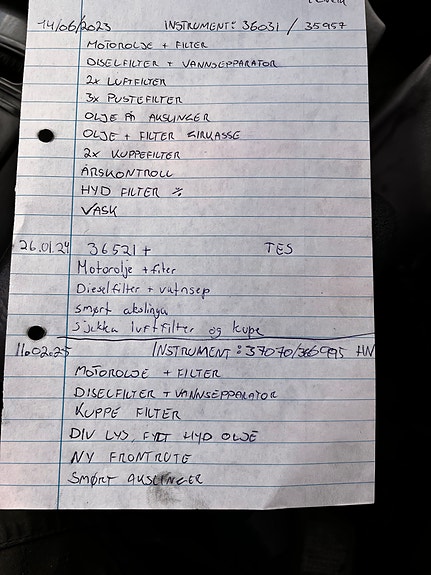 14/06/2023 INSTRUMENT: 36031 / 35957
MOTOROLJE + FILTER
DISELFILTER + VANNSEPPARATOR
2x LUFTFILTER
3x PUSTEFILTER
OLJE PÅ AKSLINGER
OLJE + FILTER GIRKASSE
2x KUPPEFILTER
ÅRSKONTROLL
HYD FILTER %
VASK
26.01.24 36521 + TES
Motorolje + filter
Dieselfilter + vatnsep
smørt akslinga
sjukka luftfilter og kupe
11.02.25 INSTRUMENT: 37070/ HN
MOTOROLJE + FILTER
DISELFILTER + VANNSEPPARATOR
KUPPE FILTER
DIV LYS, FYLT HYD OLJE
NY FRONTRUTE
SMØRT AKSLINGER